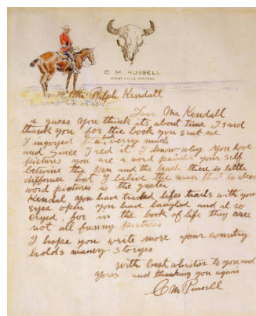 C. M. RUSSELL
Mr Ralph Kendall
Dear Mr Kendall
I guess you think its about time I said
thank you for the book you sent me
I injoyed it very much
and since I red it I know why you love
pictures you are a word painter your self
betwine the pen and the brush there is little
diffrence but I believe the man that makes
word pictures is the greater
Kendal you have traded lifes trails with your
eyes open you have laughed and al so
cryed. for in the book of life they are
not all funny pictures
I hope you write more your country
holds maney storyes
with best whishes to you and
yours and thanking you again
C M Russell